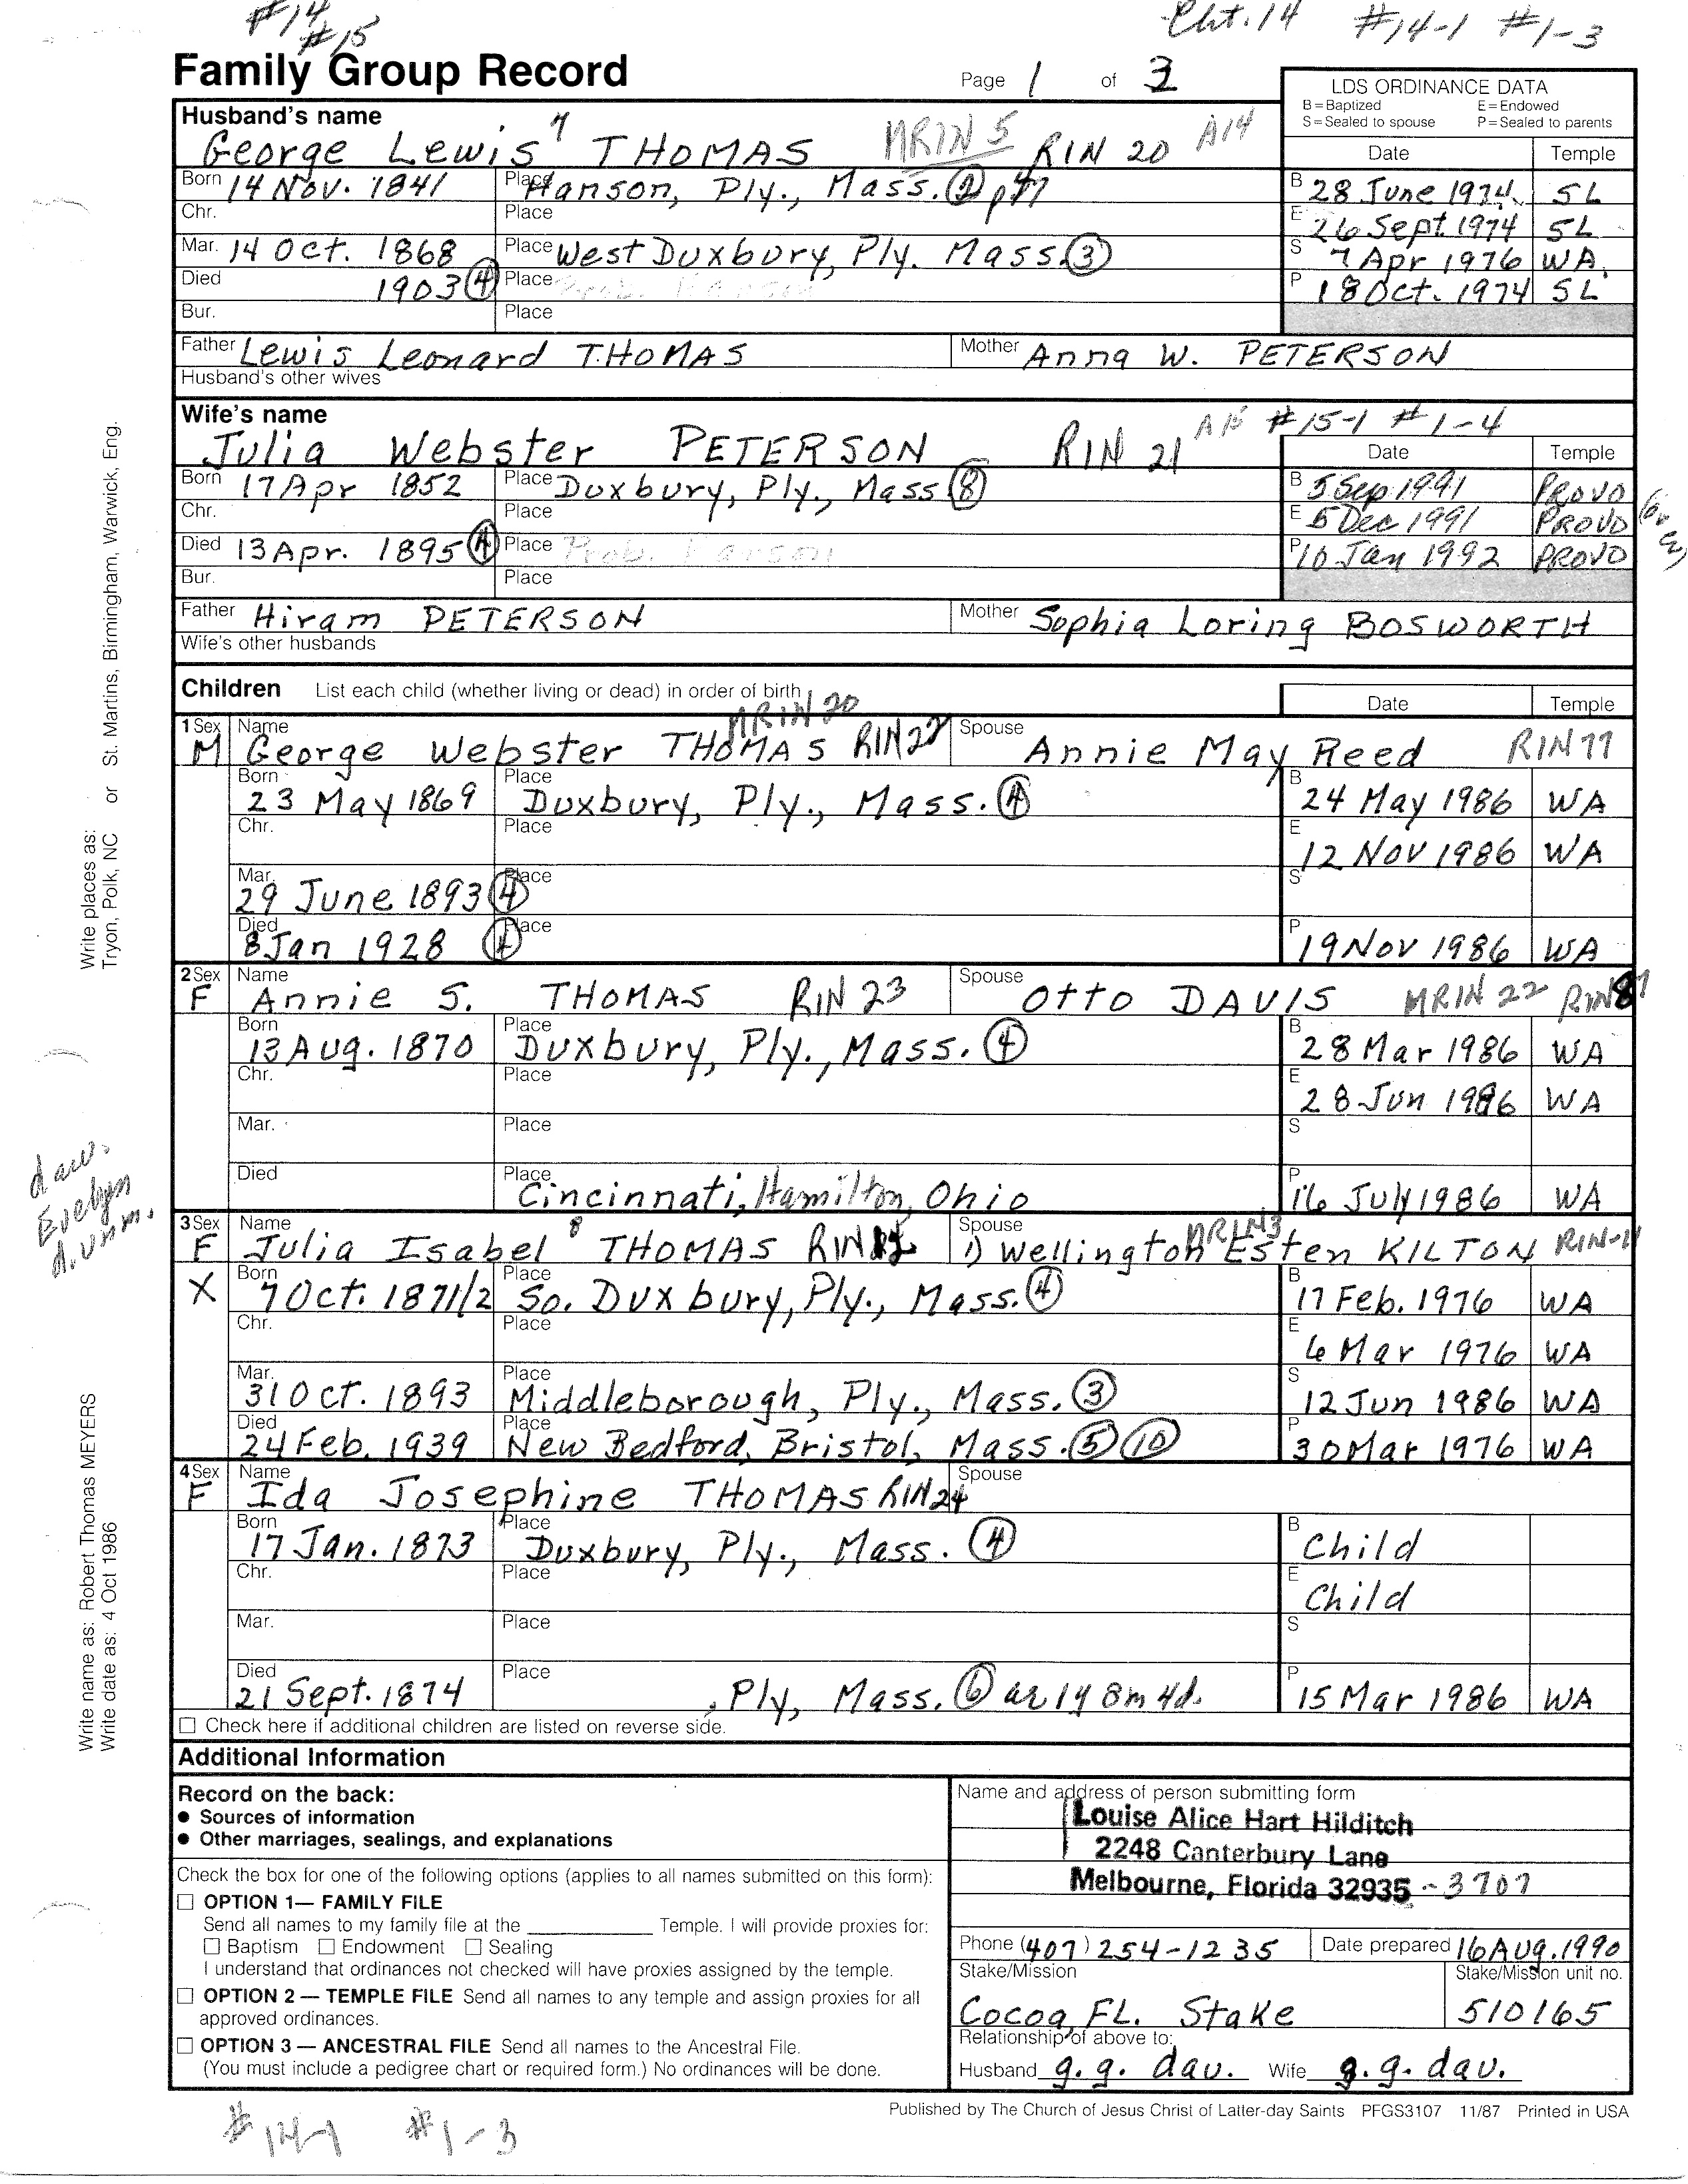 #14 #15 Cht. 14 #14-1 #1-3
Family Group Record Page 1 of 3
LDS ORDINANCE DATA
B=Baptized E=Endowed
S=Sealed to spouse P=Sealed to parents
Husband's name
George Lewis 7 THOMAS MRIN 5 RIN 20 A14 Date Temple
Born 14 Nov. 1841 Place Hanson, Ply., Mass. (2) p47 B 28 June 1974 SL
Chr. Place E 26 Sept 1974 SL
Mar. 14 Oct. 1868 Place West Duxbury, Ply. Mass. (3) S 7 Apr 1976 WA.
Died 1903 (4) Place Prob. Hanson P 18 Oct. 1974 SL
Bur. Place
Father Lewis Leonard THOMAS Mother Anna W. PETERSON
Husband's other wives
Wife's name A15 #15-1 #1-4
Julia Webster PETERSON RIN 21 Date Temple
Born 17 Apr 1852 Place Duxbury, Ply., Mass (8) B 5 Sep 1991 PROVO
Chr. Place E 5 Dec 1991 PROVO
Died 13 Apr. 1895 (4) Place Prob. Hanson P 10 Jan 1992 PROVO
Bur. Place
Father Hiram PETERSON Mother Sophia Loring BOSWORTH
Wife's other husbands
Children List each child (whether living or dead) in order of birth Date Temple
MRIN 20
1 Sex Name Spouse
M George Webster THOMAS RIN 22 Annie May Reed RIN 77
Born Place B
23 May 1869 Duxbury, Ply., Mass. (4) 24 May 1986 WA
Chr. Place E
12 Nov 1986 WA
Mar. Place S
29 June 1893 (4)
Died Place P
8 Jan 1928 (4) 19 Nov 1986 WA
2 Sex Name Spouse
F Annie S. THOMAS RIN 23 Otto DAVIS MRIN 22 RIN 87
Born Place B
13 Aug. 1870 Duxbury, Ply., Mass. (4) 28 Mar 1986 WA
Chr. Place E
28 Jun 1986 WA
Mar. Place S
Died Place P
Cincinnati, Hamilton, Ohio 16 July 1986 WA
dau.
Evelyn
d. unm.
3 Sex Name Spouse MRIN3
F Julia Isabel 8 THOMAS RIN 1) Wellington Esten KILTON RIN-11
X Born Place B
7 Oct. 1871/2 So. Duxbury, Ply., Mass. (4) 17 Feb. 1976 WA
Chr. Place E
6 Mar 1976 WA
Mar. Place S
31 Oct. 1893 Middleborough, Ply., Mass. (3) 12 Jun 1986 WA
Died Place P
24 Feb. 1939 New Bedford, Bristol, Mass. (5) (10) 30 Mar 1976 WA
4 Sex Name Spouse
F Ida Josephine THOMAS RIN 24
Born Place B
17 Jan. 1873 Duxbury, Ply., Mass. (4) Child
Chr. Place E
Child
Mar. Place S
Died Place P
21 Sept. 1874 , Ply, Mass. (6) ae 1y 8m 4d. 15 Mar 1986 WA
☐ Check here if additional children are listed on reverse side.
Additional Information
Record on the back:
● Sources of information
● Other marriages, sealings, and explanations
Check the box for one of the following options (applies to all names submitted on this form):
☐ OPTION 1— FAMILY FILE
Send all names to my family file at the ________ Temple. I will provide proxies for:
☐ Baptism ☐ Endowment ☐ Sealing
I understand that ordinances not checked will have proxies assigned by the temple.
☐ OPTION 2 — TEMPLE FILE Send all names to any temple and assign proxies for all
approved ordinances.
☐ OPTION 3 — ANCESTRAL FILE Send all names to the Ancestral File.
(You must include a pedigree chart or required form.) No ordinances will be done.
Name and address of person submitting form
Louise Alice Hart Hilditch
2248 Canterbury Lane
Melbourne, Florida 32935 - 3707
Phone (407) 254-1235 Date prepared 16 Aug. 1990
Stake/Mission Stake/Mission unit no.
Cocoa, FL. Stake 510165
Relationship of above to:
Husband g. g. dau. Wife g. g. dau.
Published by The Church of Jesus Christ of Latter-day Saints PFGS3107 11/87 Printed in USA
#14-1 #1-3
Write places as: Tryon, Polk, NC or St. Martins, Birmingham, Warwick, Eng.
Write name as: Robert Thomas MEYERS
Write date as: 4 Oct 1986